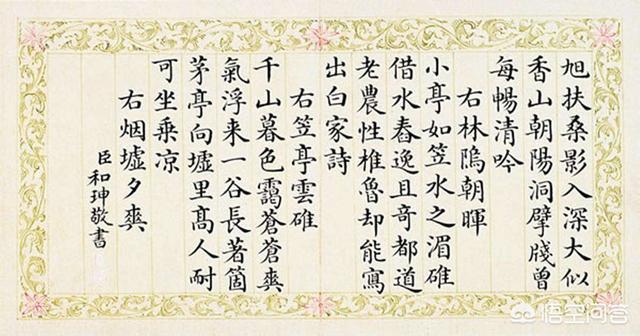 旭扶桑影入深大似
香山朝陽洞擘牋曾
每暢清吟
右林隖朝暉
小亭如笠水之湄碓
借水舂逸且奇都道
老農性椎魯却能寫
出白家詩
右笠亭雲碓
千山暮色靄蒼蒼爽
氣浮来一谷長著箇
茅亭向墟里髙人耐
可坐乘凉
右烟墟夕爽
臣和珅敬書
悟空问答